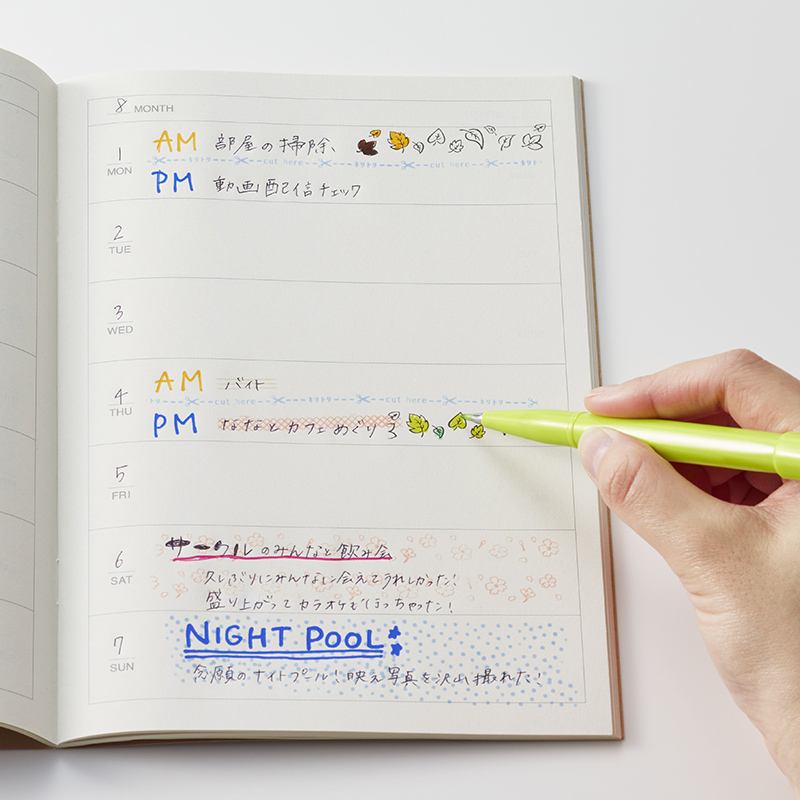 8 MONTH
1 MON
AM 部屋の掃除、
キリトリ cut here キリトリ cut here キリトリ
PM 動画配信チェック
2 TUE
3 WED
4 THU
AM バイト
トリ cut here キリトリ cut here キリトリ
PM ななとカフェめぐり
5 FRI
6 SAT
サークルのみんなと飲み会
久しぶりにみんなに会えてうれしかった!
盛り上がってカラオケも行っちゃった!
7 SUN
NIGHT POOL
念願のナイトプール!映え写真を沢山撮れた!